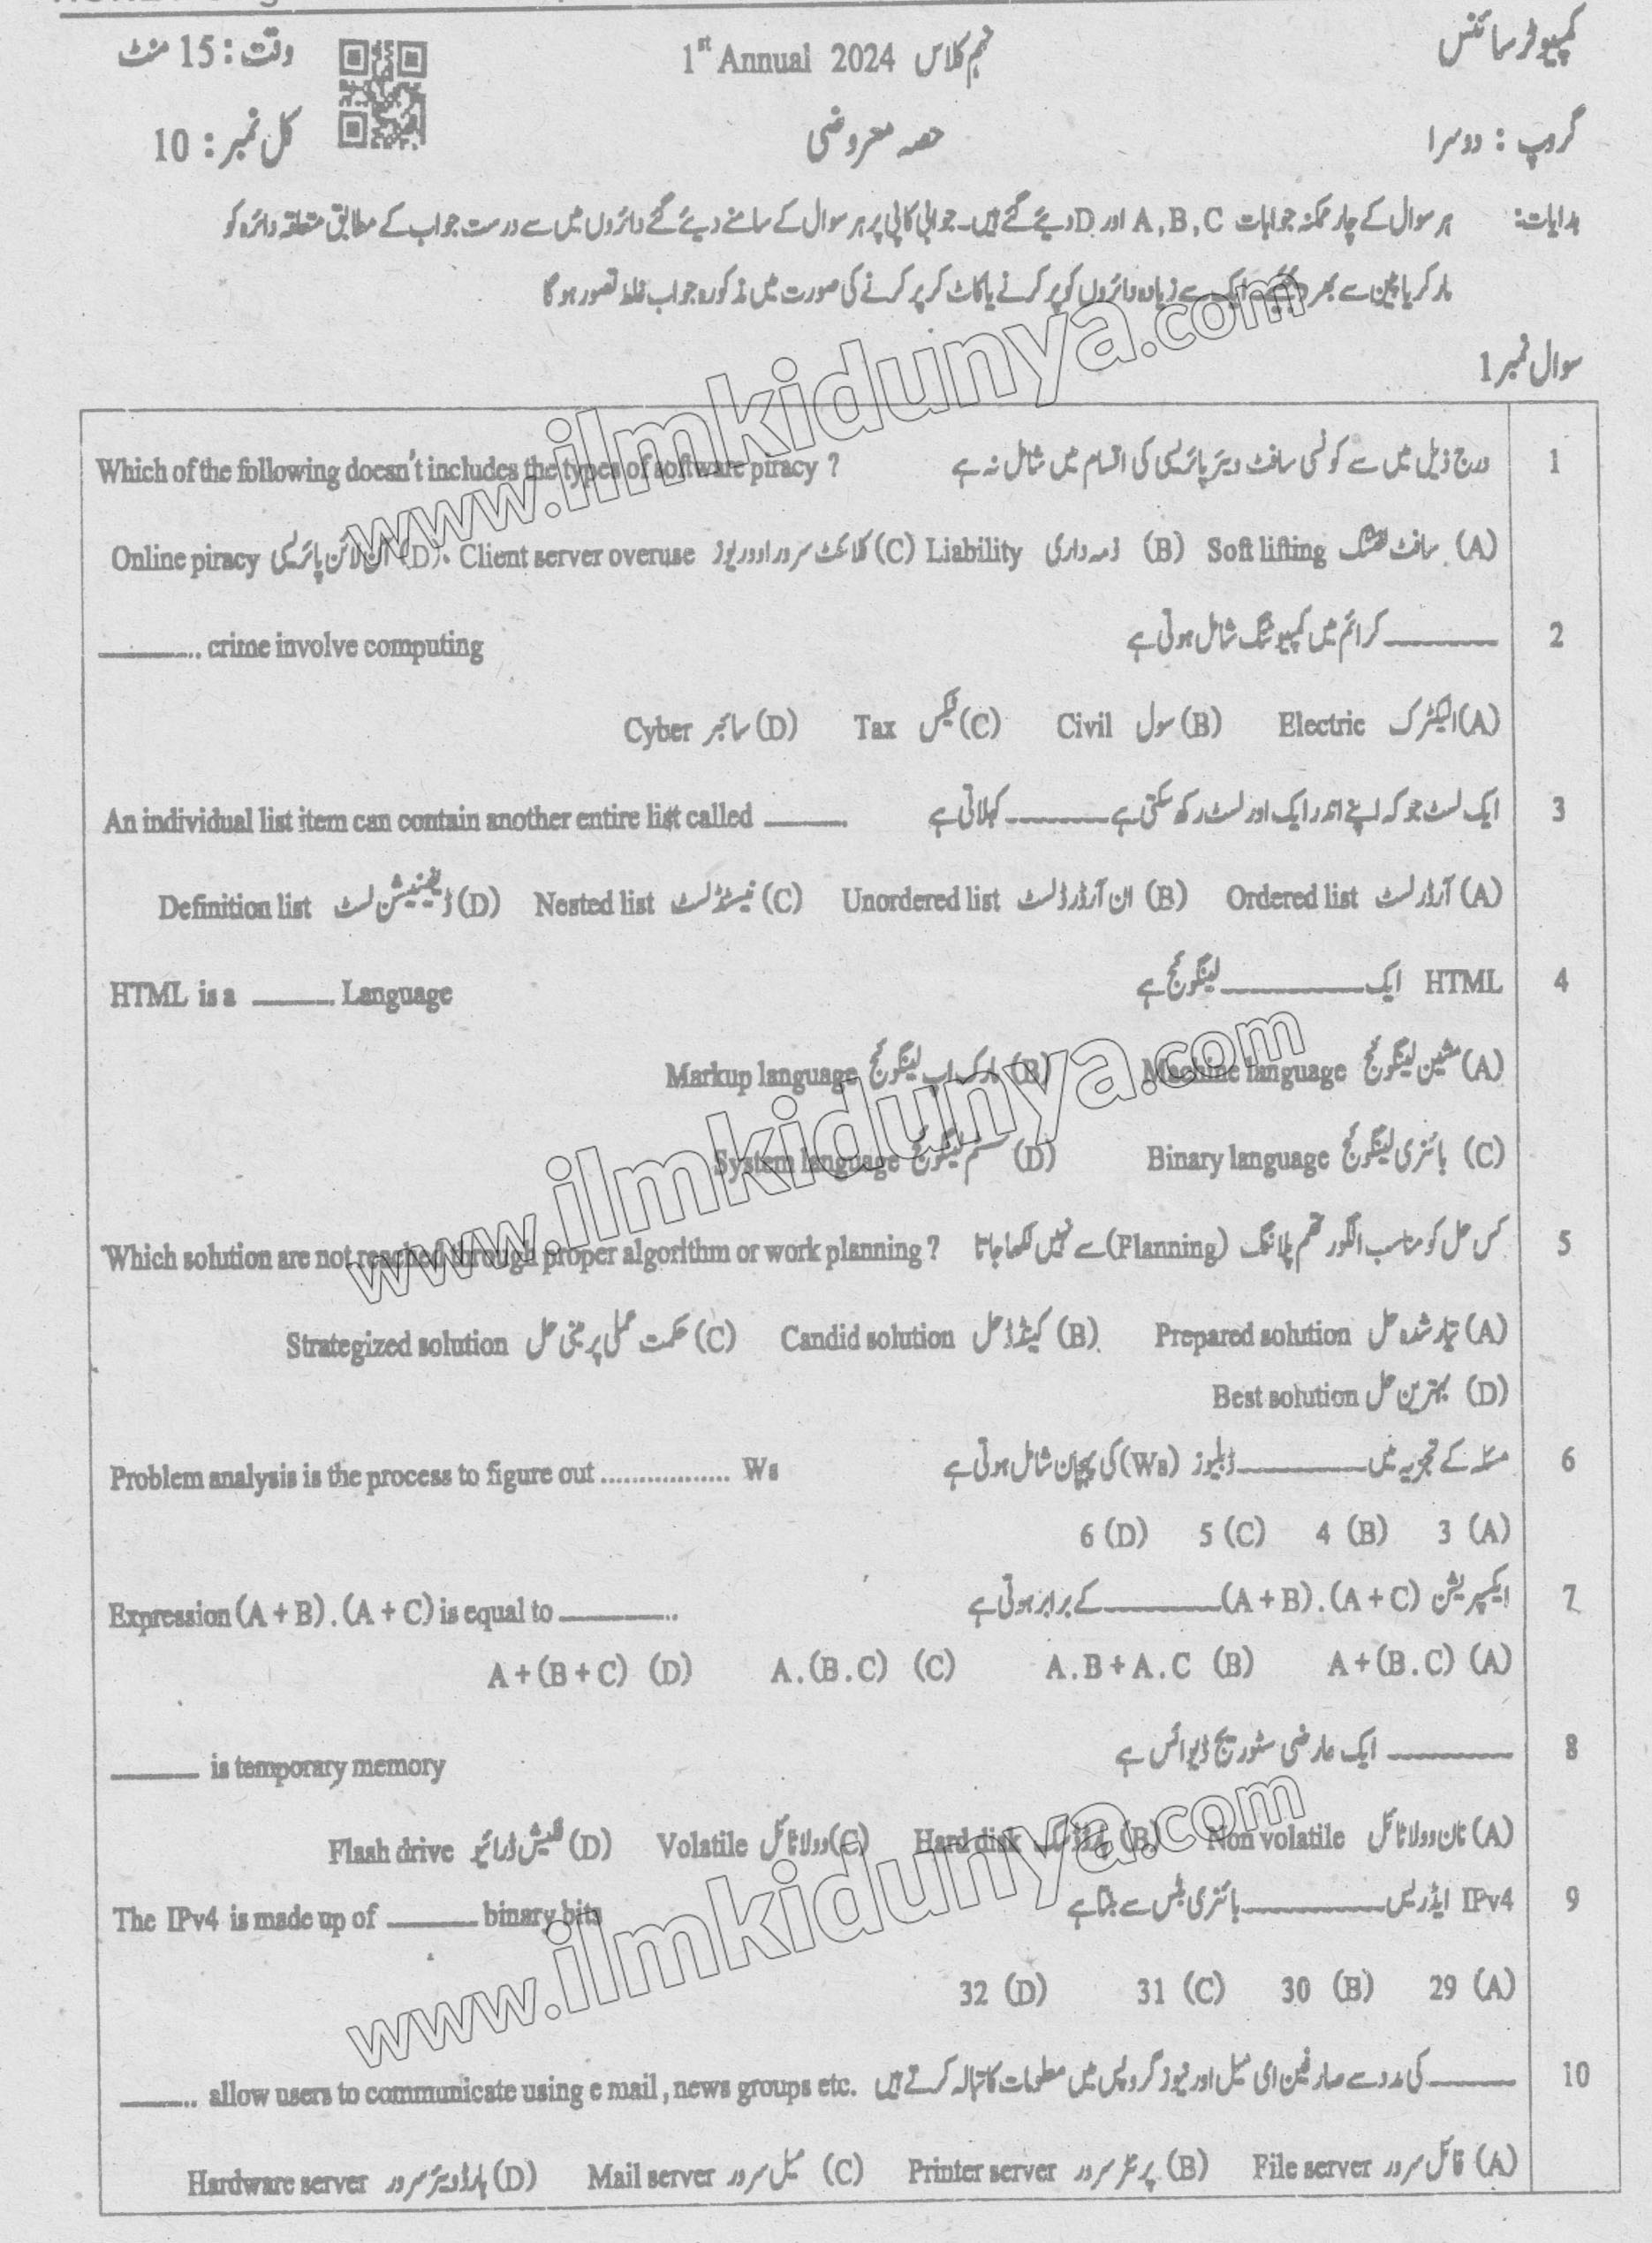 کمپیوٹر سائنس نہم کلاس 1st Annual 2024 وقت : 15 منٹ
گروپ : دوسرا حصہ معروضی کل نمبر : 10
ہدایات: ہر سوال کے چار ممکنہ جوابات A , B , C اور D دیئے گئے ہیں۔ جوابی کاپی پر ہر سوال کے سامنے دیئے گئے دائروں میں سے درست جواب کے مطابق متعلقہ دائرہ کو
مارکر یا پین سے بھر دیجئے۔ ایک سے زیادہ دائروں کو پر کرنے یا کاٹ کر پر کرنے کی صورت میں مذکورہ جواب غلط تصور ہو گا
سوال نمبر 1
1 درج ذیل میں سے کونسی سافٹ ویئر پائریسی کی اقسام میں شامل نہ ہے Which of the following doesn't includes the types of software piracy ?
(A) سافٹ لفٹنگ Soft lifting (B) ذمہ داری Liability (C) کلائنٹ سرور اوور یوز Client server overuse (D) آن لائن پائریسی Online piracy
2 ________ کرائم میں کمپیوٹنگ شامل ہوتی ہے ________.. crime involve computing
(A) الیکٹرک Electric (B) سول Civil (C) ٹیکس Tax (D) سائبر Cyber
3 ایک لسٹ جو کہ اپنے اندر ایک اور لسٹ رکھ سکتی ہے ________ کہلاتی ہے An individual list item can contain another entire list called ________
(A) آرڈر لسٹ Ordered list (B) ان آرڈرڈ لسٹ Unordered list (C) نیسٹڈ لسٹ Nested list (D) ڈیفینیشن لسٹ Definition list
4 HTML ایک ________ لینگوئج ہے HTML is a ________ Language
(A) مشین لینگوئج Machine language (B) مارک اپ لینگوئج Markup language
(C) بائنری لینگوئج Binary language (D) سسٹم لینگوئج System language
5 کس حل کو مناسب الگورتھم پلاننگ (Planning) سے نہیں لکھا جاتا Which solution are not reached through proper algorithm or work planning ?
(A) تیار شدہ حل Prepared solution (B) کینڈڈ حل Candid solution (C) حکمت عملی پر مبنی حل Strategized solution
(D) بہترین حل Best solution
6 مسئلہ کے تجزیہ میں ________ ڈبلیوز (Ws) کی پہچان شامل ہوتی ہے Problem analysis is the process to figure out ................. Ws
(A) 3 (B) 4 (C) 5 (D) 6
7 ایکسپریشن (A + B) . (A + C) ________ کے برابر ہوتی ہے Expression (A + B) . (A + C) is equal to ________..
(A) A + (B . C) (B) A . B + A . C (C) A . (B . C) (D) A + (B + C)
8 ________ ایک عارضی سٹوریج ڈیوائس ہے ________ is temporary memory
(A) نان وولاٹائل Non volatile (B) ہارڈ ڈسک Hard disk (C) وولاٹائل Volatile (D) فلیش ڈرائیو Flash drive
9 IPv4 ایڈریس ________ بائنری بٹس سے بنتا ہے The IPv4 is made up of ________ binary bits
(A) 29 (B) 30 (C) 31 (D) 32
10 ________ کی مدد سے صارفین ای میل اور نیوز گروپس میں معلومات کا تبادلہ کرتے ہیں ________.. allow users to communicate using e mail , news groups etc.
(A) فائل سرور File server (B) پرنٹر سرور Printer server (C) میل سرور Mail server (D) ہارڈویئر سرور Hardware server
www.ilmkidunya.com
www.ilmkidunya.com
www.ilmkidunya.com